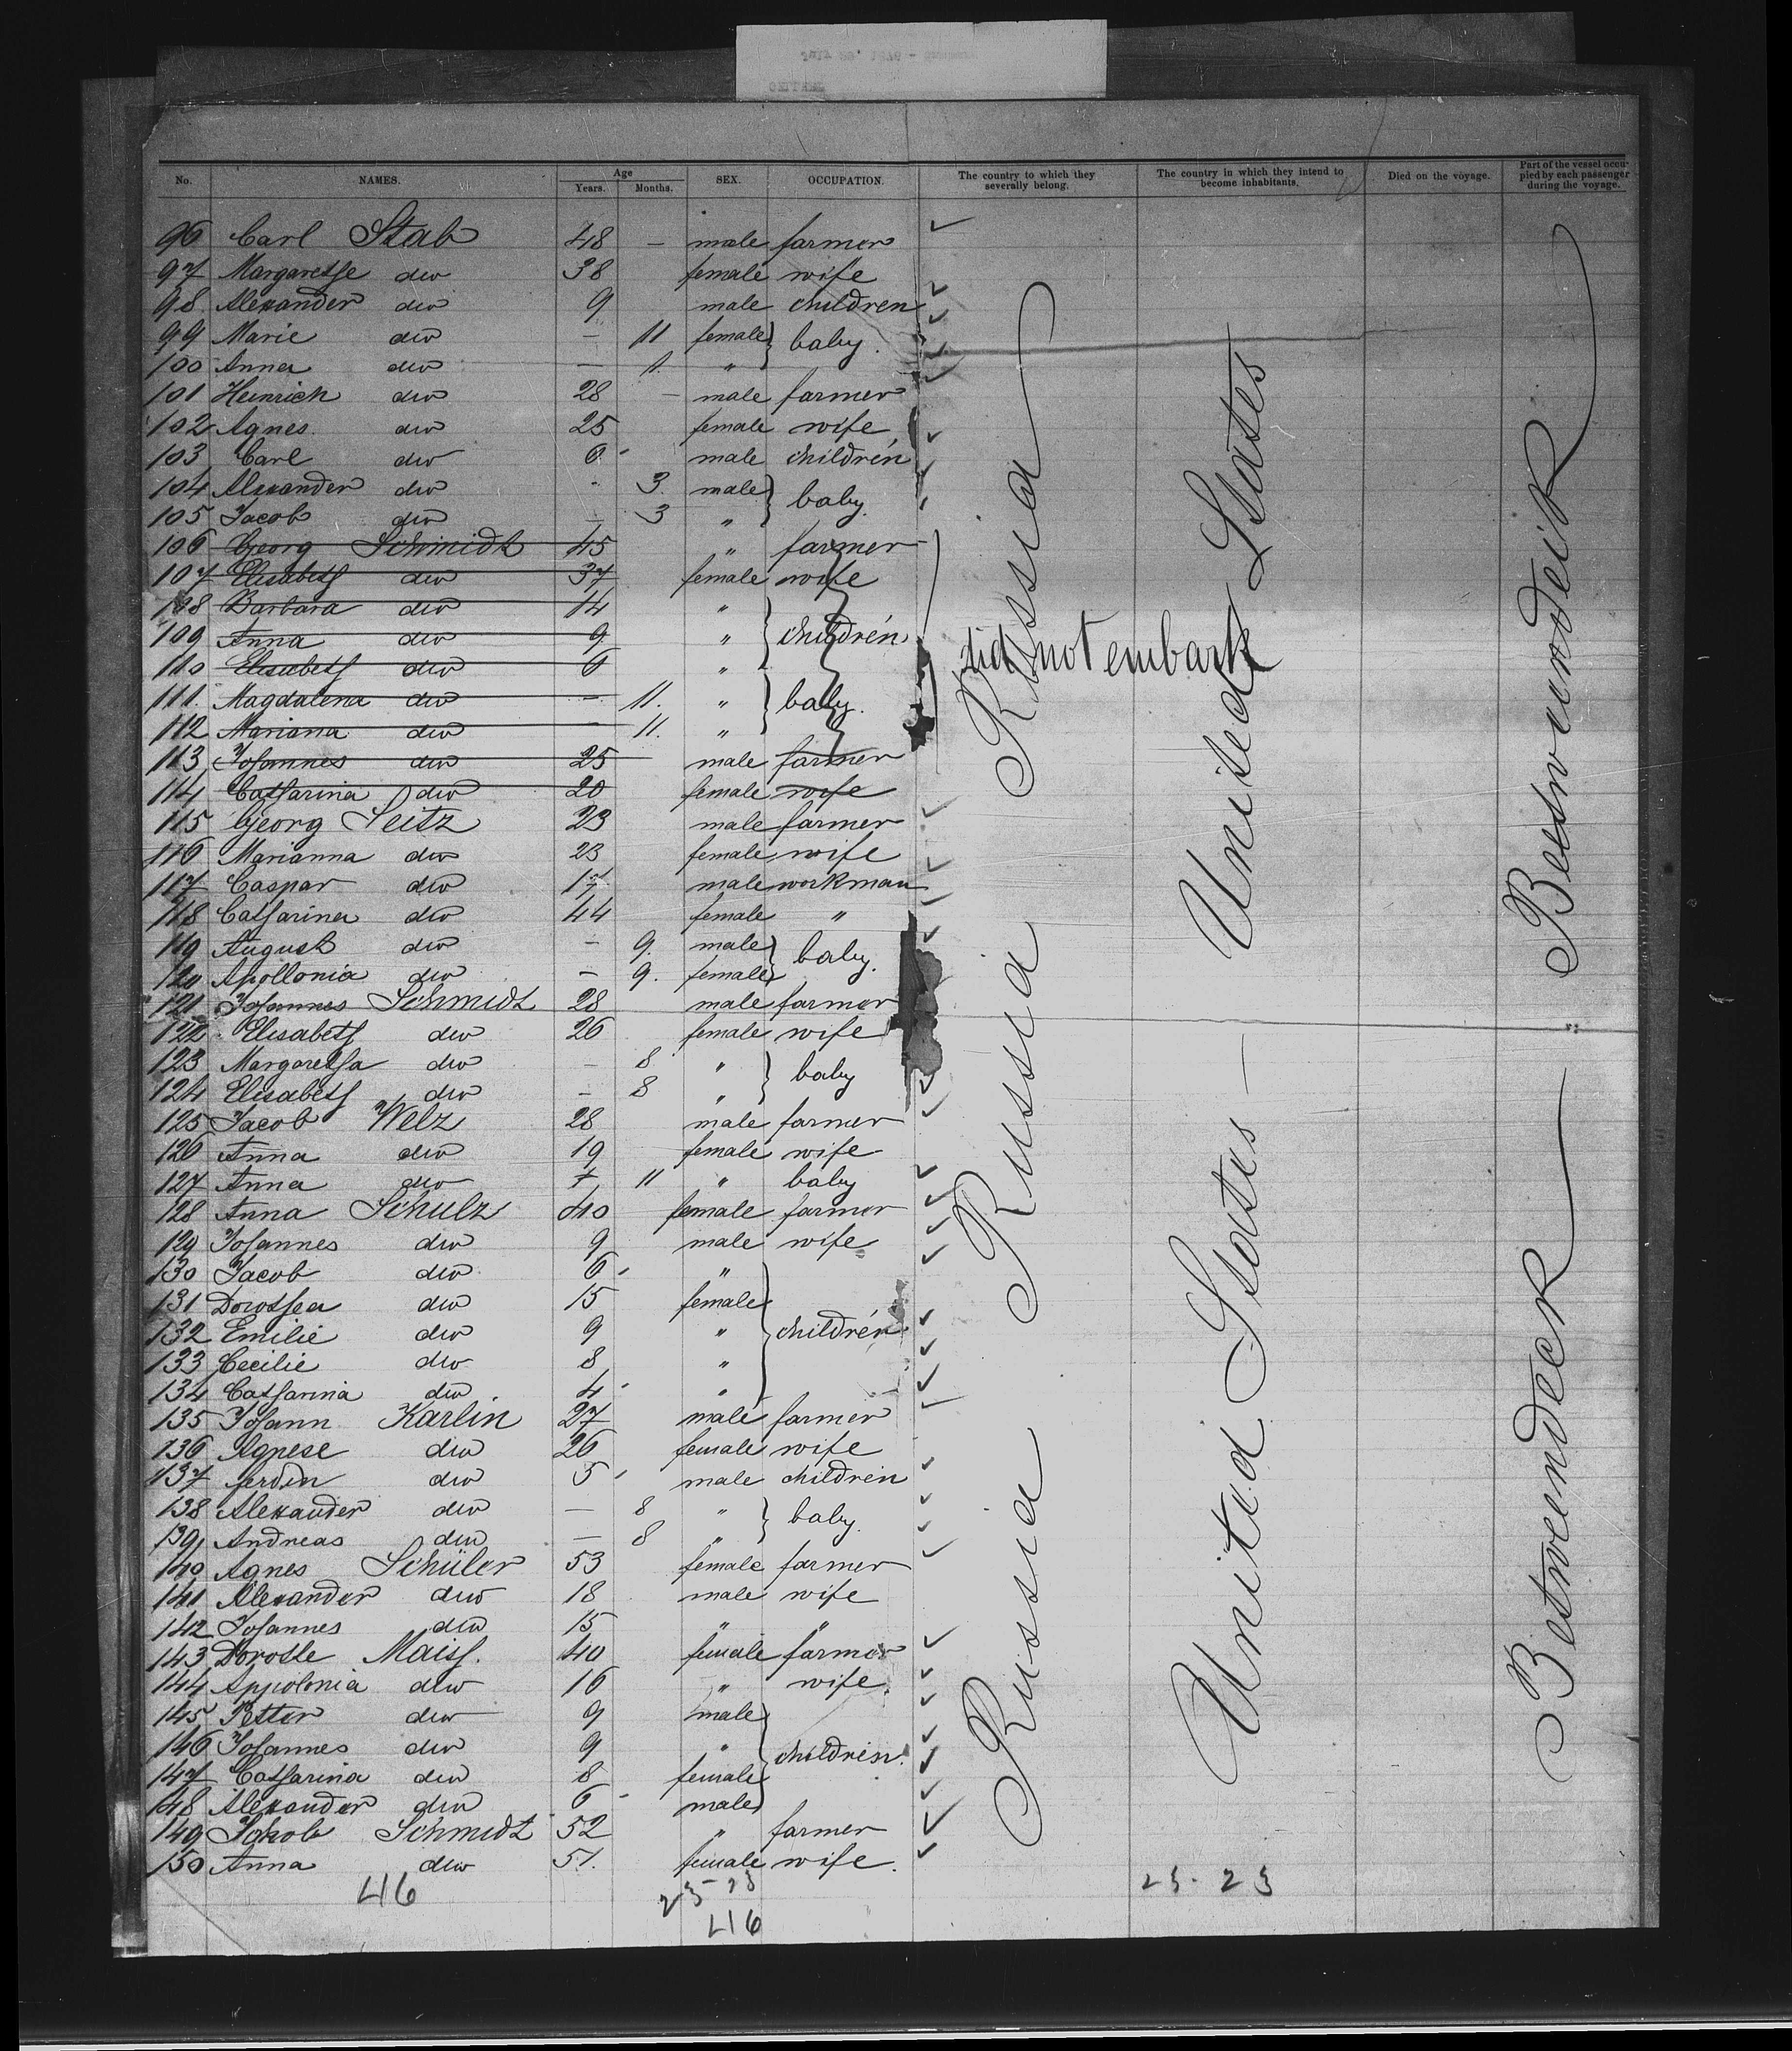 No. NAMES. Age Years. Months. SEX. OCCUPATION. The country to which they severally belong. The country in which they intend to become inhabitants. Died on the voyage. Part of the vessel occupied by each passenger during the voyage.
96 Carl Stab 48 — male farmer
97 Margarethe do 38 female wife
98 Alexander do 9 male children
99 Marie do — 11 female baby.
100 Anna do — 1. "
101 Heinrich do 28 — male farmer
102 Agnes do 25 female wife
103 Carl do 6 male children
104 Alexander do 3 male baby.
105 Jacob do 3 "
106 Georg Schmidt 45 " farmer
107 Elisabeth do 37 female wife
108 Barbara do 14 "
109 Anna do 9 " children
110 Elisabeth do 6 "
111. Magdalena do — 11. " baby.
112 Mariana do — 11. "
did not embark
113 Johannes do 25 male farmer
114 Catharina do 20 female wife
115 Georg Seitz 23 male farmer
116 Marianna do 23 female wife
117 Caspar do 17 male workman
118 Catharina do 44 female "
119 August do — 9. male baby.
120 Apollonia do — 9. female
121 Johannes Schmidt 28 male farmer
122 Elisabeth do 26 female wife
123 Margaretha do — 8 " baby
124 Elisabeth do — 8 "
125 Jacob Welz 28 male farmer
126 Anna do 19 female wife
127 Anna do 11 " baby
128 Anna Schulz 40 female farmer
129 Johannes do 9 male wife
130 Jacob do 6 "
131 Dorothea do 15 female
132 Emilie do 9 " children
133 Cecilie do 8 "
134 Catharina do 4 "
135 Johann Karlin 27 male farmer
136 Agnese do 26 female wife
137 Ferdin do 5 male children
138 Alexander do — 8 " baby.
139 Andreas do — 8 "
140 Agnes Schüler 53 female farmer
141 Alexander do 18 male wife
142 Johannes do 15 " "
143 Dorothe 40 female farmer
144 Appolonia do 16 " wife.
145 Petter do 9 male
146 Johannes do 9 " children.
147 Catharina do 8 female
148 Alexander do 6 male
149 Schmidt 52 " farmer
150 Anna do 51. female wife.
46
23-23
46
23-23
Russia
Russia
Russia
United States
United States —
Betweendeck
Betweendeck